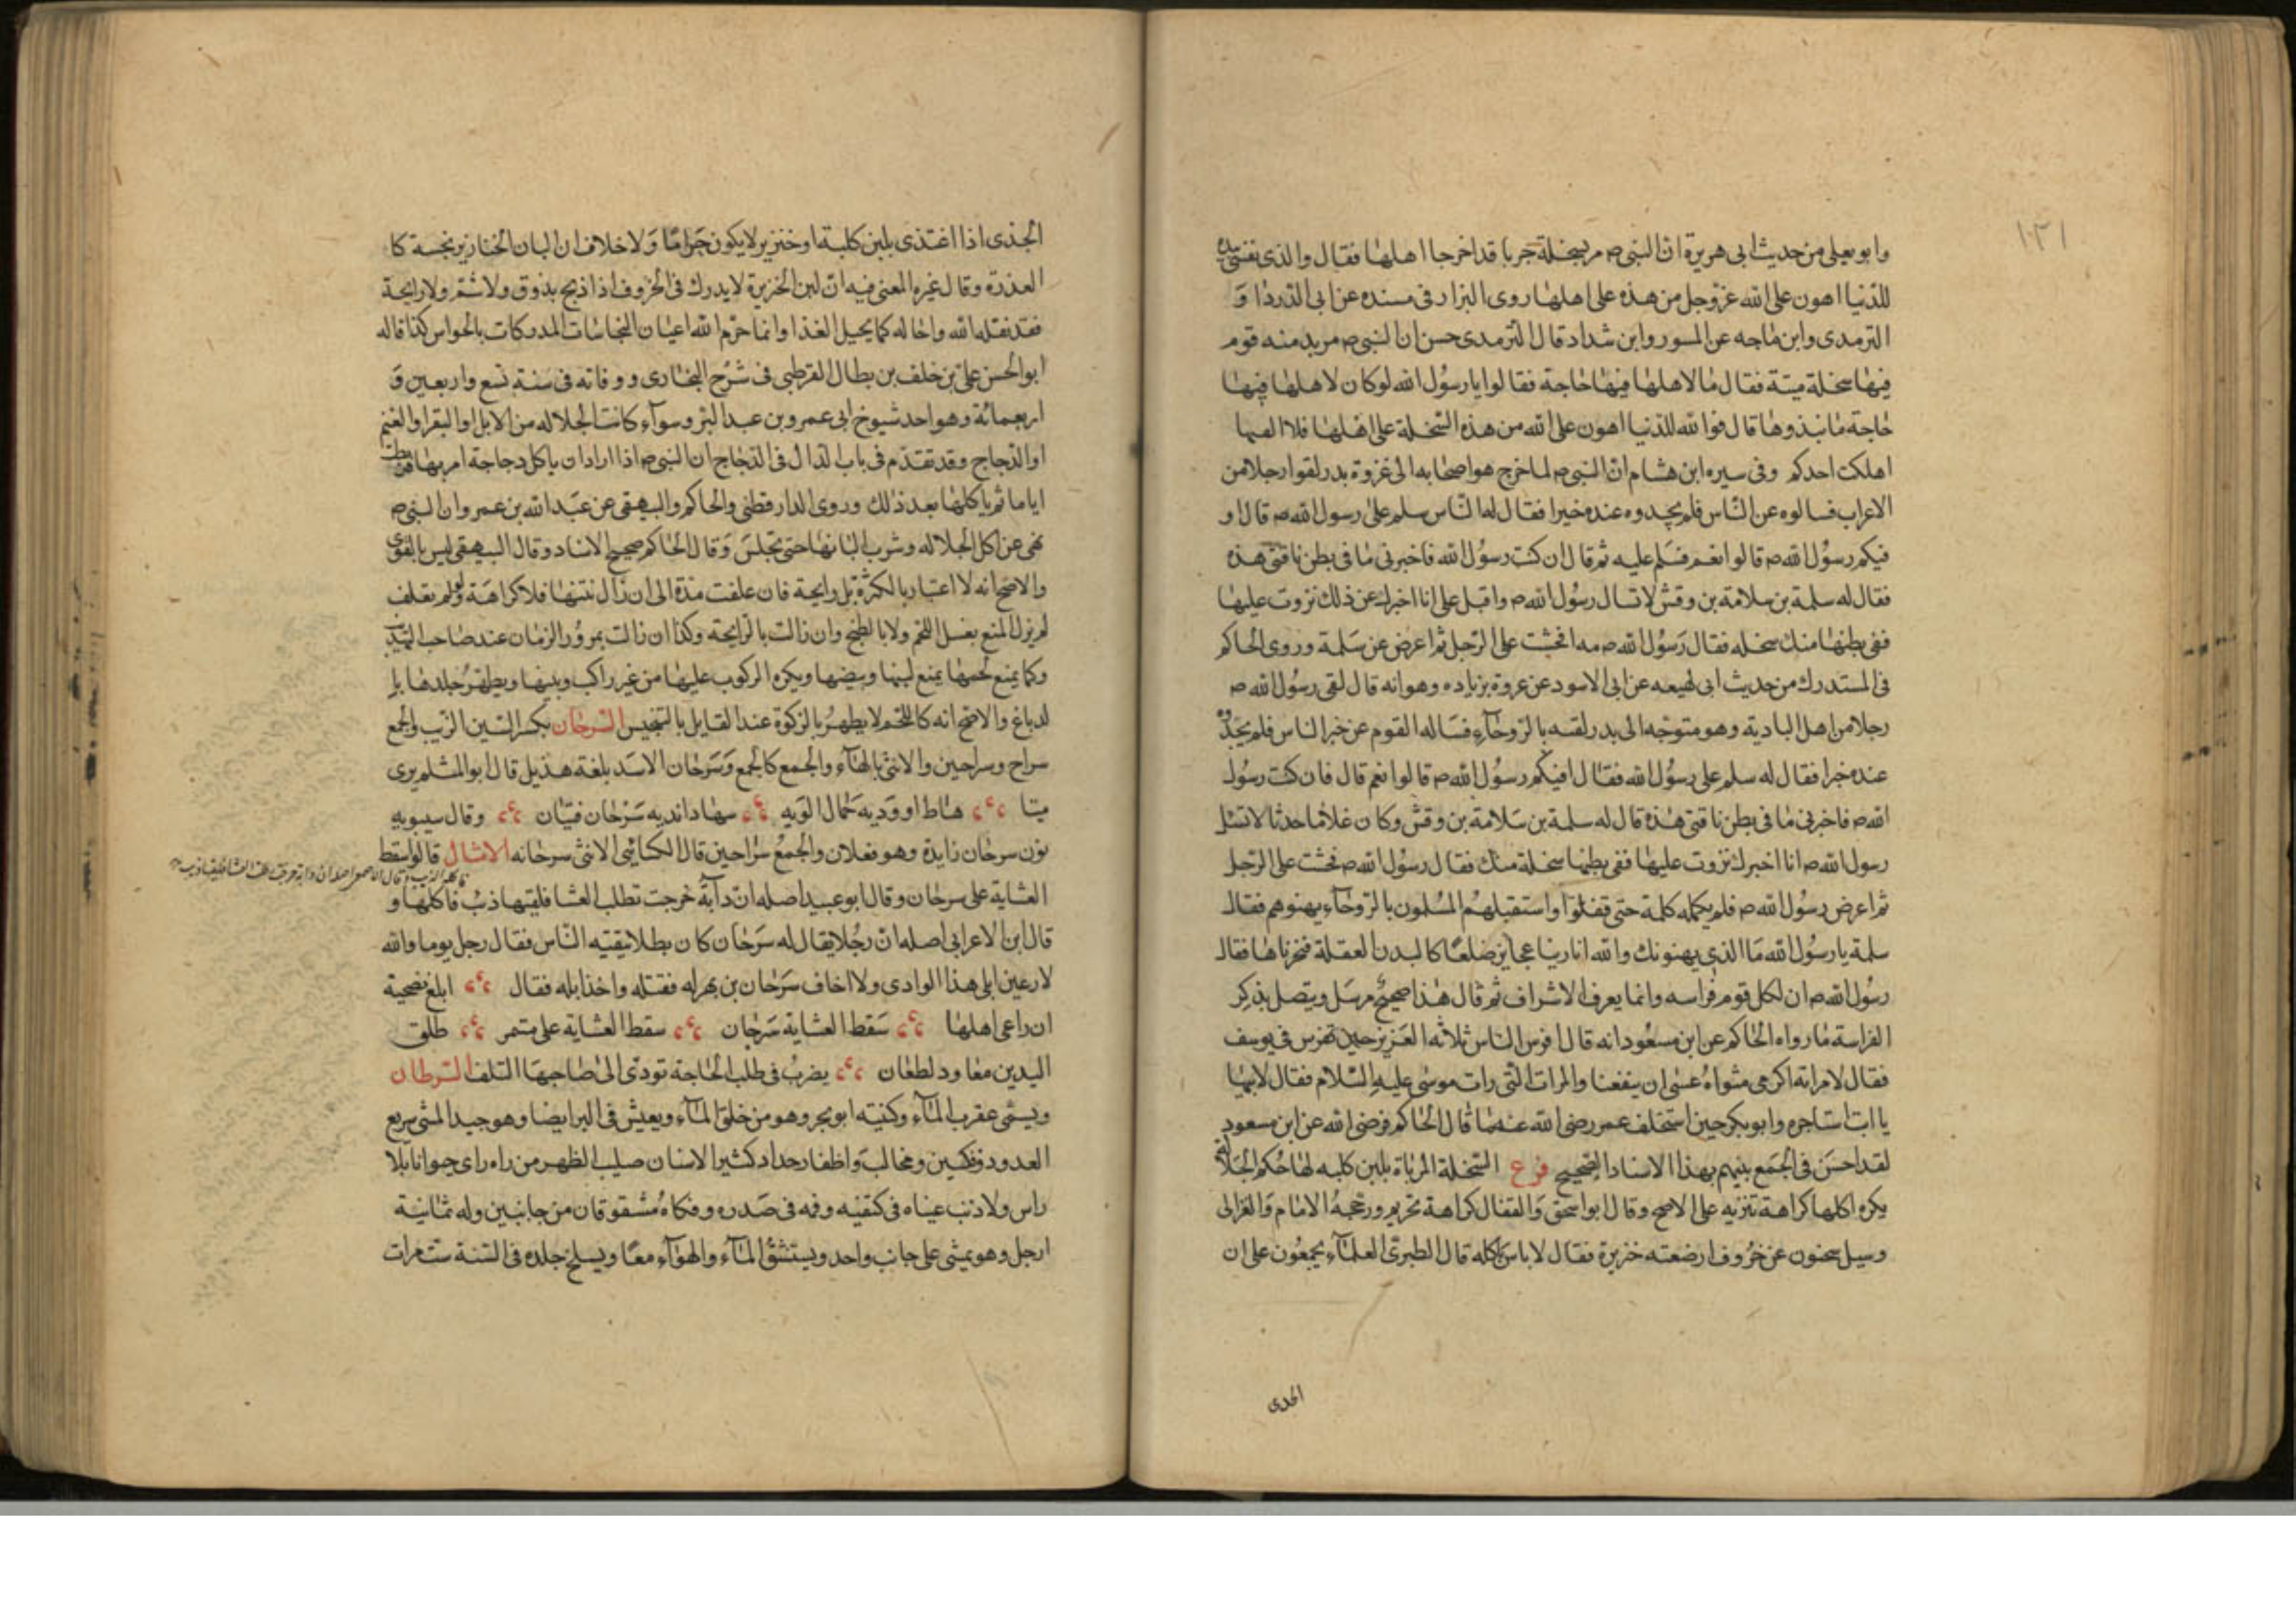 ١٣١
وابو يعلى من حديث ابى هريرة ان النبى ص مر بسخلة جربا قد اخرجا اهلها فقال والذى نفسى بيده
للدنيا اهون على الله عز وجل من هذه على اهلها روى البزار فى مسنده عن ابى الدردا و
الترمدى وابن ماجه عن المسور وابن شداد قال الترمدى حسن ان النبى ص مر بدمنه قوم
فيها سخلة ميتة فقال ما لاهلها فيها حاجة فقالوا يا رسول الله لو كان لاهلها فيها
حاجة ما نبذوها قال فوا الله للدنيا اهون على الله من هذه السخلة على اهلها فلا الفيها
اهلكت احدكم وفى سيره ابن هشام ان النبى ص لما خرج هو اصحابه الى غزوة بدر لقوا رجلا من
الاعراب فسالوه عن الناس فلم يجدوه عنده خيرا فقال له الناس سلم على رسول الله ص قال او
فيكم رسول الله ص قالوا نعم فسلم عليه ثم قال ان كنت رسول الله فاخبرنى ما فى بطن ناقتى هذه
فقال له سلمة بن سلامة بن وقش لا تسال رسول الله ص واقبل على انا اخبرك عن ذلك نزوت عليها
ففى بطنها منك سخله فقال رسول الله ص مه افحشت على الرجل ثم اعرض عن سلمة وروى الحاكم
فى المستدرك من حديث ابى لهيعه عن ابى الاسود عن عروة بن زياده وهو انه قال لقى رسول الله ص
رجلا من اهل البادية وهو متوجه الى بدر لقيه بالروحآء فساله القوم عن خبر الناس فلم يجدوه
عنده خبرا فقال له سلم على رسول الله فقال افيكم رسول الله ص قالوا نعم قال فان كنت رسول
الله ص فاخبرنى ما فى بطن ناقتى هذه قال له سلمة بن سلامة بن وقش وكان غلاما حدثا لا تسئل
رسول الله ص انا اخبرك نزوت عليها ففى بطنها سخلة منك فقال رسول الله ص فحشت على الرجل
ثم اعرض رسول الله ص فلم يكمله كلمة حتى قفلوا واستقبلهم المسلمون بالروحآء يهنوهم فقال
سلمة يا رسول الله ما الذى يهنونك والله انا رينا عجايز ضلعا كالبدن العقلة فنحرناها فقال
رسول الله ص ان لكل قوم فراسه وانما يعرف الاشراف ثم قال هذا صحيح مرسل ويتصل بذكر
الفراسة ما رواه الحاكم عن ابن مسعود انه قال افرس الناس ثلاثه العزيز حين تفرس فى يوسف
فقال لامراته اكرمى مثواه عسى ان ينفعنا والمرات التى رات موسى عليه السلام فقال لابيها
يا ابت استاجره وابو بكر حين استخلف عمر رضى الله عنهما قال الحاكم فرضى الله عن ابن مسعود
لقد احسن فى الجمع بينهم بهذا الاسناد الصحيح فرع السخلة المرباة بلبن كلبه لها حكم الجلالة
يكره اكلها كراهة تنزيه على الاصح وقال ابو اسحق والقفال كراهة تحريم ورجحه الامام والغزالى
وسيل سحنون عن خروف ارضعته خنزيرة فقال لا باس باكله قال الطبرى العلمآء يجمعون على ان
الجدى
الجذى اذا اغتذى بلبن كلبة او خنزير لا يكون حراما ولا خلاف ان البان الخنازير نجسة كا
العذرة وقال غيره المعنى فيه ان لبن الخنزيرة لا يدرك فى الخروف اذا ذبح بذوق ولا شم ولا رايحة
فقد نقله الله واحاله كما يحيل الغذا وانما حرم الله اعيان النجاسات المدركات بالحواس كذا قاله
ابو الحسن على بن خلف بن بطال القرطبى فى شرح البخارى ووفاته فى سنة تسع واربعين و
اربعمائة وهو احد شيوخ ابى عمرو بن عبد البر وسوآء كانت الجلاله من الابل او البقر او الغنم
او الدجاج وقد تقدم فى باب الدال فى الدجاج ان النبى ص اذا اراد ان ياكل دجاجة امر بها فربطت
اياما ثم ياكلها بعد ذلك وروى الدارقطنى والحاكم والبيهقى عن عبد الله بن عمرو ان النبى ص
نهى عن اكل الجلاله وشرب البانها حتى تحبس وقال الحاكم صحيح الاسناد وقال البيهقى ليس بالقوى
والاصح انه لا اعتبار بالكثرة بل رايحة فان علفت مدة الى ان زال نتنها فلا كراهة ولو لم تعلف
لم يزل المنع بغسل اللحم ولا بالطبخ وان زالت بالرايحة وكذا ان زالت بمرور الزمان عند صاحب التهذيب
وكما يمنع لحمها يمنع لبنها وبيضها ويكره الركوب عليها من غير راكب وبينها ويطهر جلدها با
لدباغ والاصح انه كاللحم لا يطهر بالزكوة عند القايل بالتنجيس السرحان بكسر السين الذيب والجمع
سراح وسراحين والانثى بالهآء والجمع كالجمع وسرحان الاسد بلغة هذيل قال ابو المثلم يرى
ميتا هباط اووديه حمال الويه شهاد انديه سرحان فتيان وقال سيبويه
نون سرحان زايدة وهو فعلان والجمع سراحين قال الكسائى الانثى سرحانه الامثال قالوا سقط
العشاية على سرحان وقال ابو عبيد اصله ان دآبة خرجت تطلب العشا فلقيها ذئب فاكلها و
قال ابن الاعرابى اصله ان رجلا يقال له سرحان كان بطلا يتقيه الناس فقال رجل يوما والله
لارعين ابلى هذا الوادى ولا اخاف سرحان بن هزله فقتله واخذ ابله فقال ابلغ نصيحة
ان راعى اهلها سقط العشاية سرحان سقط العشاية على متمر طلق
اليدين معاود لطعان يضرب فى طلب الحاجة تودى الى صاحبها التلف السرطان
ويسمى عقرب المآء وكنيته ابو بحر وهو من خلق المآء ويعيش فى البر ايضا وهو جيد المشى سريع
العدو ذو فكين ومخالب واظفار حداد كثير الاسنان صليب الظهر من راه راى حيوانا بلا
راس ولا ذنب عيناه فى كتفيه وفمه فى صدره وفكاه مشقوقان من جانبين وله ثمانية
ارجل وهو يمشى على جانب واحد ويستنشق المآء والهوآء معا ويسلخ جلده فى السنة ست مرات